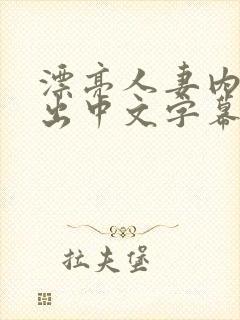 漂亮人妻内
出中文字幕
拉夫堡